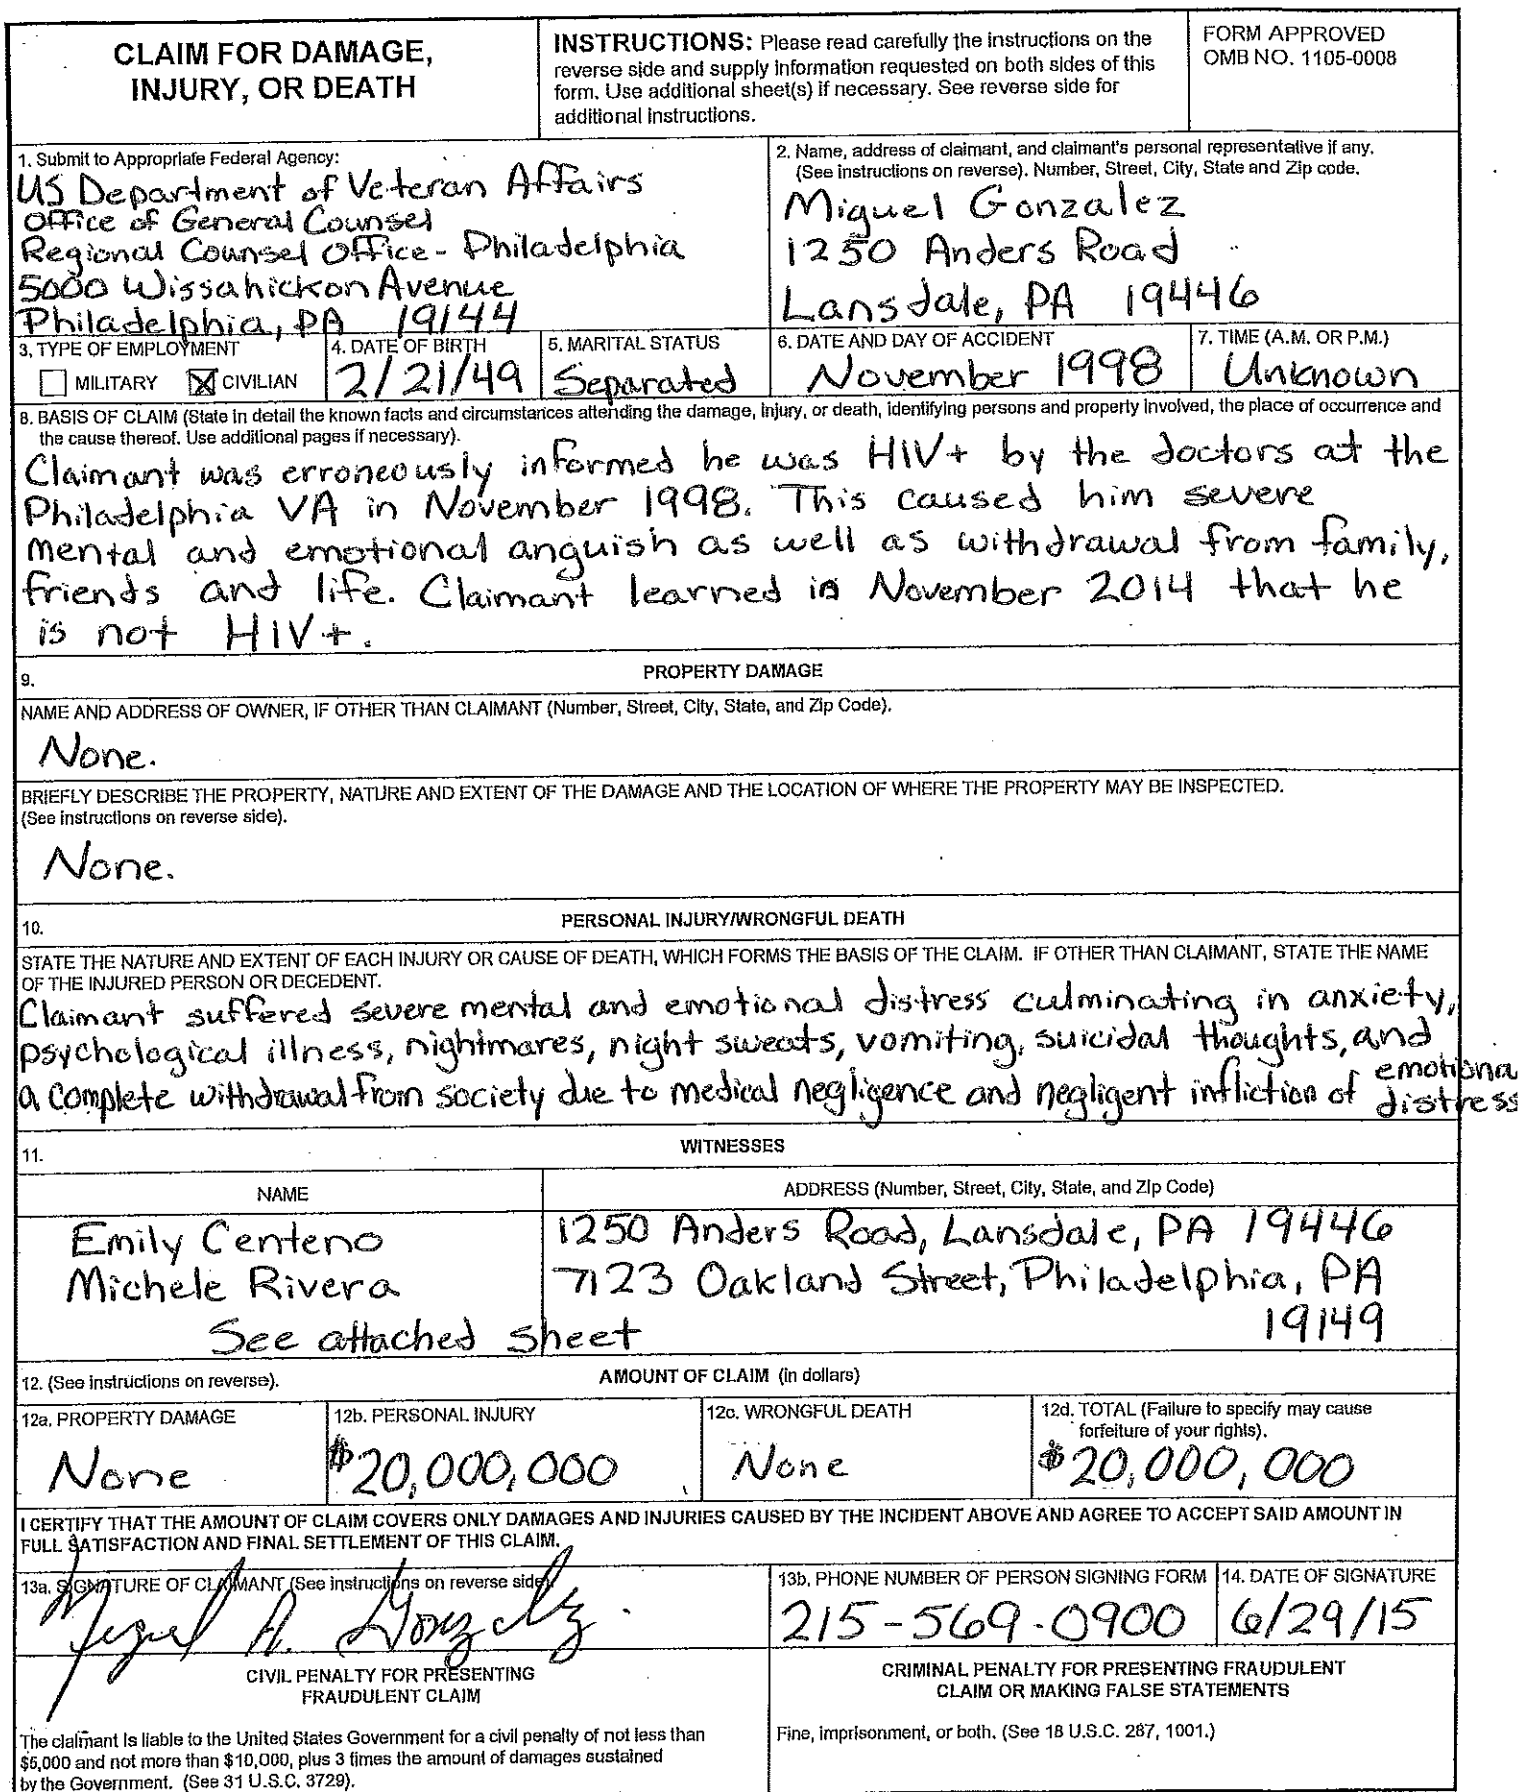 CLAIM FOR DAMAGE,
INJURY, OR DEATH
INSTRUCTIONS: Please read carefully the instructions on the
reverse side and supply information requested on both sides of this
form. Use additional sheet(s) if necessary. See reverse side for
additional instructions.
FORM APPROVED
OMB NO. 1105-0008
1. Submit to Appropriate Federal Agency:
US Department of Veteran Affairs
Office of General Counsel
Regional Counsel Office - Philadelphia
5000 Wissahickon Avenue
Philadelphia, PA 19144
2. Name, address of claimant, and claimant's personal representative if any.
(See instructions on reverse). Number, Street, City, State and Zip code.
Miguel Gonzalez
1250 Anders Road
Lansdale, PA 19446
3. TYPE OF EMPLOYMENT
MILITARY X CIVILIAN
4. DATE OF BIRTH
2/21/49
5. MARITAL STATUS
Separated
6. DATE AND DAY OF ACCIDENT
November 1998
7. TIME (A.M. OR P.M.)
Unknown
8. BASIS OF CLAIM (State in detail the known facts and circumstances attending the damage, injury, or death, identifying persons and property involved, the place of occurrence and
the cause thereof. Use additional pages if necessary).
Claimant was erroneously informed he was HIV+ by the doctors at the
Philadelphia VA in November 1998. This caused him severe
mental and emotional anguish as well as withdrawal from family,
friends and life. Claimant learned in November 2014 that he
is not HIV+.
9. PROPERTY DAMAGE
NAME AND ADDRESS OF OWNER, IF OTHER THAN CLAIMANT (Number, Street, City, State, and Zip Code).
None.
BRIEFLY DESCRIBE THE PROPERTY, NATURE AND EXTENT OF THE DAMAGE AND THE LOCATION OF WHERE THE PROPERTY MAY BE INSPECTED.
(See instructions on reverse side).
None.
10. PERSONAL INJURY/WRONGFUL DEATH
STATE THE NATURE AND EXTENT OF EACH INJURY OR CAUSE OF DEATH, WHICH FORMS THE BASIS OF THE CLAIM. IF OTHER THAN CLAIMANT, STATE THE NAME
OF THE INJURED PERSON OR DECEDENT.
Claimant suffered severe mental and emotional distress culminating in anxiety,
psychological illness, nightmares, night sweats, vomiting, suicidal thoughts, and
a complete withdrawal from society due to medical negligence and negligent infliction of emotiona
distress
11. WITNESSES
NAME
ADDRESS (Number, Street, City, State, and Zip Code)
Emily Centeno
1250 Anders Road, Lansdale, PA 19446
Michele Rivera
7123 Oakland Street, Philadelphia, PA
19149
See attached sheet
12. (See instructions on reverse). AMOUNT OF CLAIM (in dollars)
12a. PROPERTY DAMAGE
None
12b. PERSONAL INJURY
$20,000,000
12c. WRONGFUL DEATH
None
12d. TOTAL (Failure to specify may cause
forfeiture of your rights).
$20,000,000
I CERTIFY THAT THE AMOUNT OF CLAIM COVERS ONLY DAMAGES AND INJURIES CAUSED BY THE INCIDENT ABOVE AND AGREE TO ACCEPT SAID AMOUNT IN
FULL SATISFACTION AND FINAL SETTLEMENT OF THIS CLAIM.
13a. SIGNATURE OF CLAIMANT (See instructions on reverse side)
Miguel A. Gonzalez.
13b. PHONE NUMBER OF PERSON SIGNING FORM
215-569-0900
14. DATE OF SIGNATURE
6/29/15
CIVIL PENALTY FOR PRESENTING
FRAUDULENT CLAIM
The claimant is liable to the United States Government for a civil penalty of not less than
$5,000 and not more than $10,000, plus 3 times the amount of damages sustained
by the Government. (See 31 U.S.C. 3729).
CRIMINAL PENALTY FOR PRESENTING FRAUDULENT
CLAIM OR MAKING FALSE STATEMENTS
Fine, imprisonment, or both. (See 18 U.S.C. 287, 1001.)